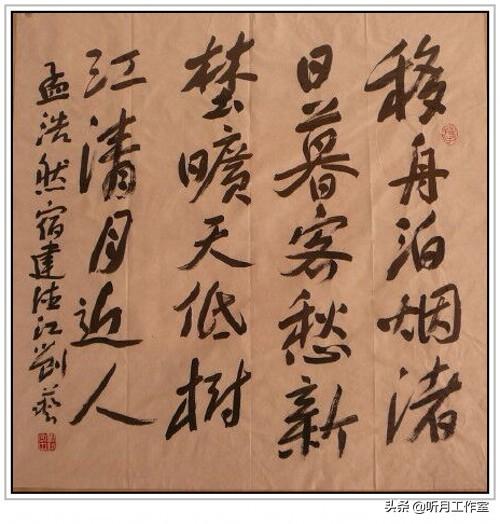 移舟泊烟渚
日暮客愁新
埜曠天低樹
江清月近人
孟浩然宿建德江劉藝
头条 @听月工作室